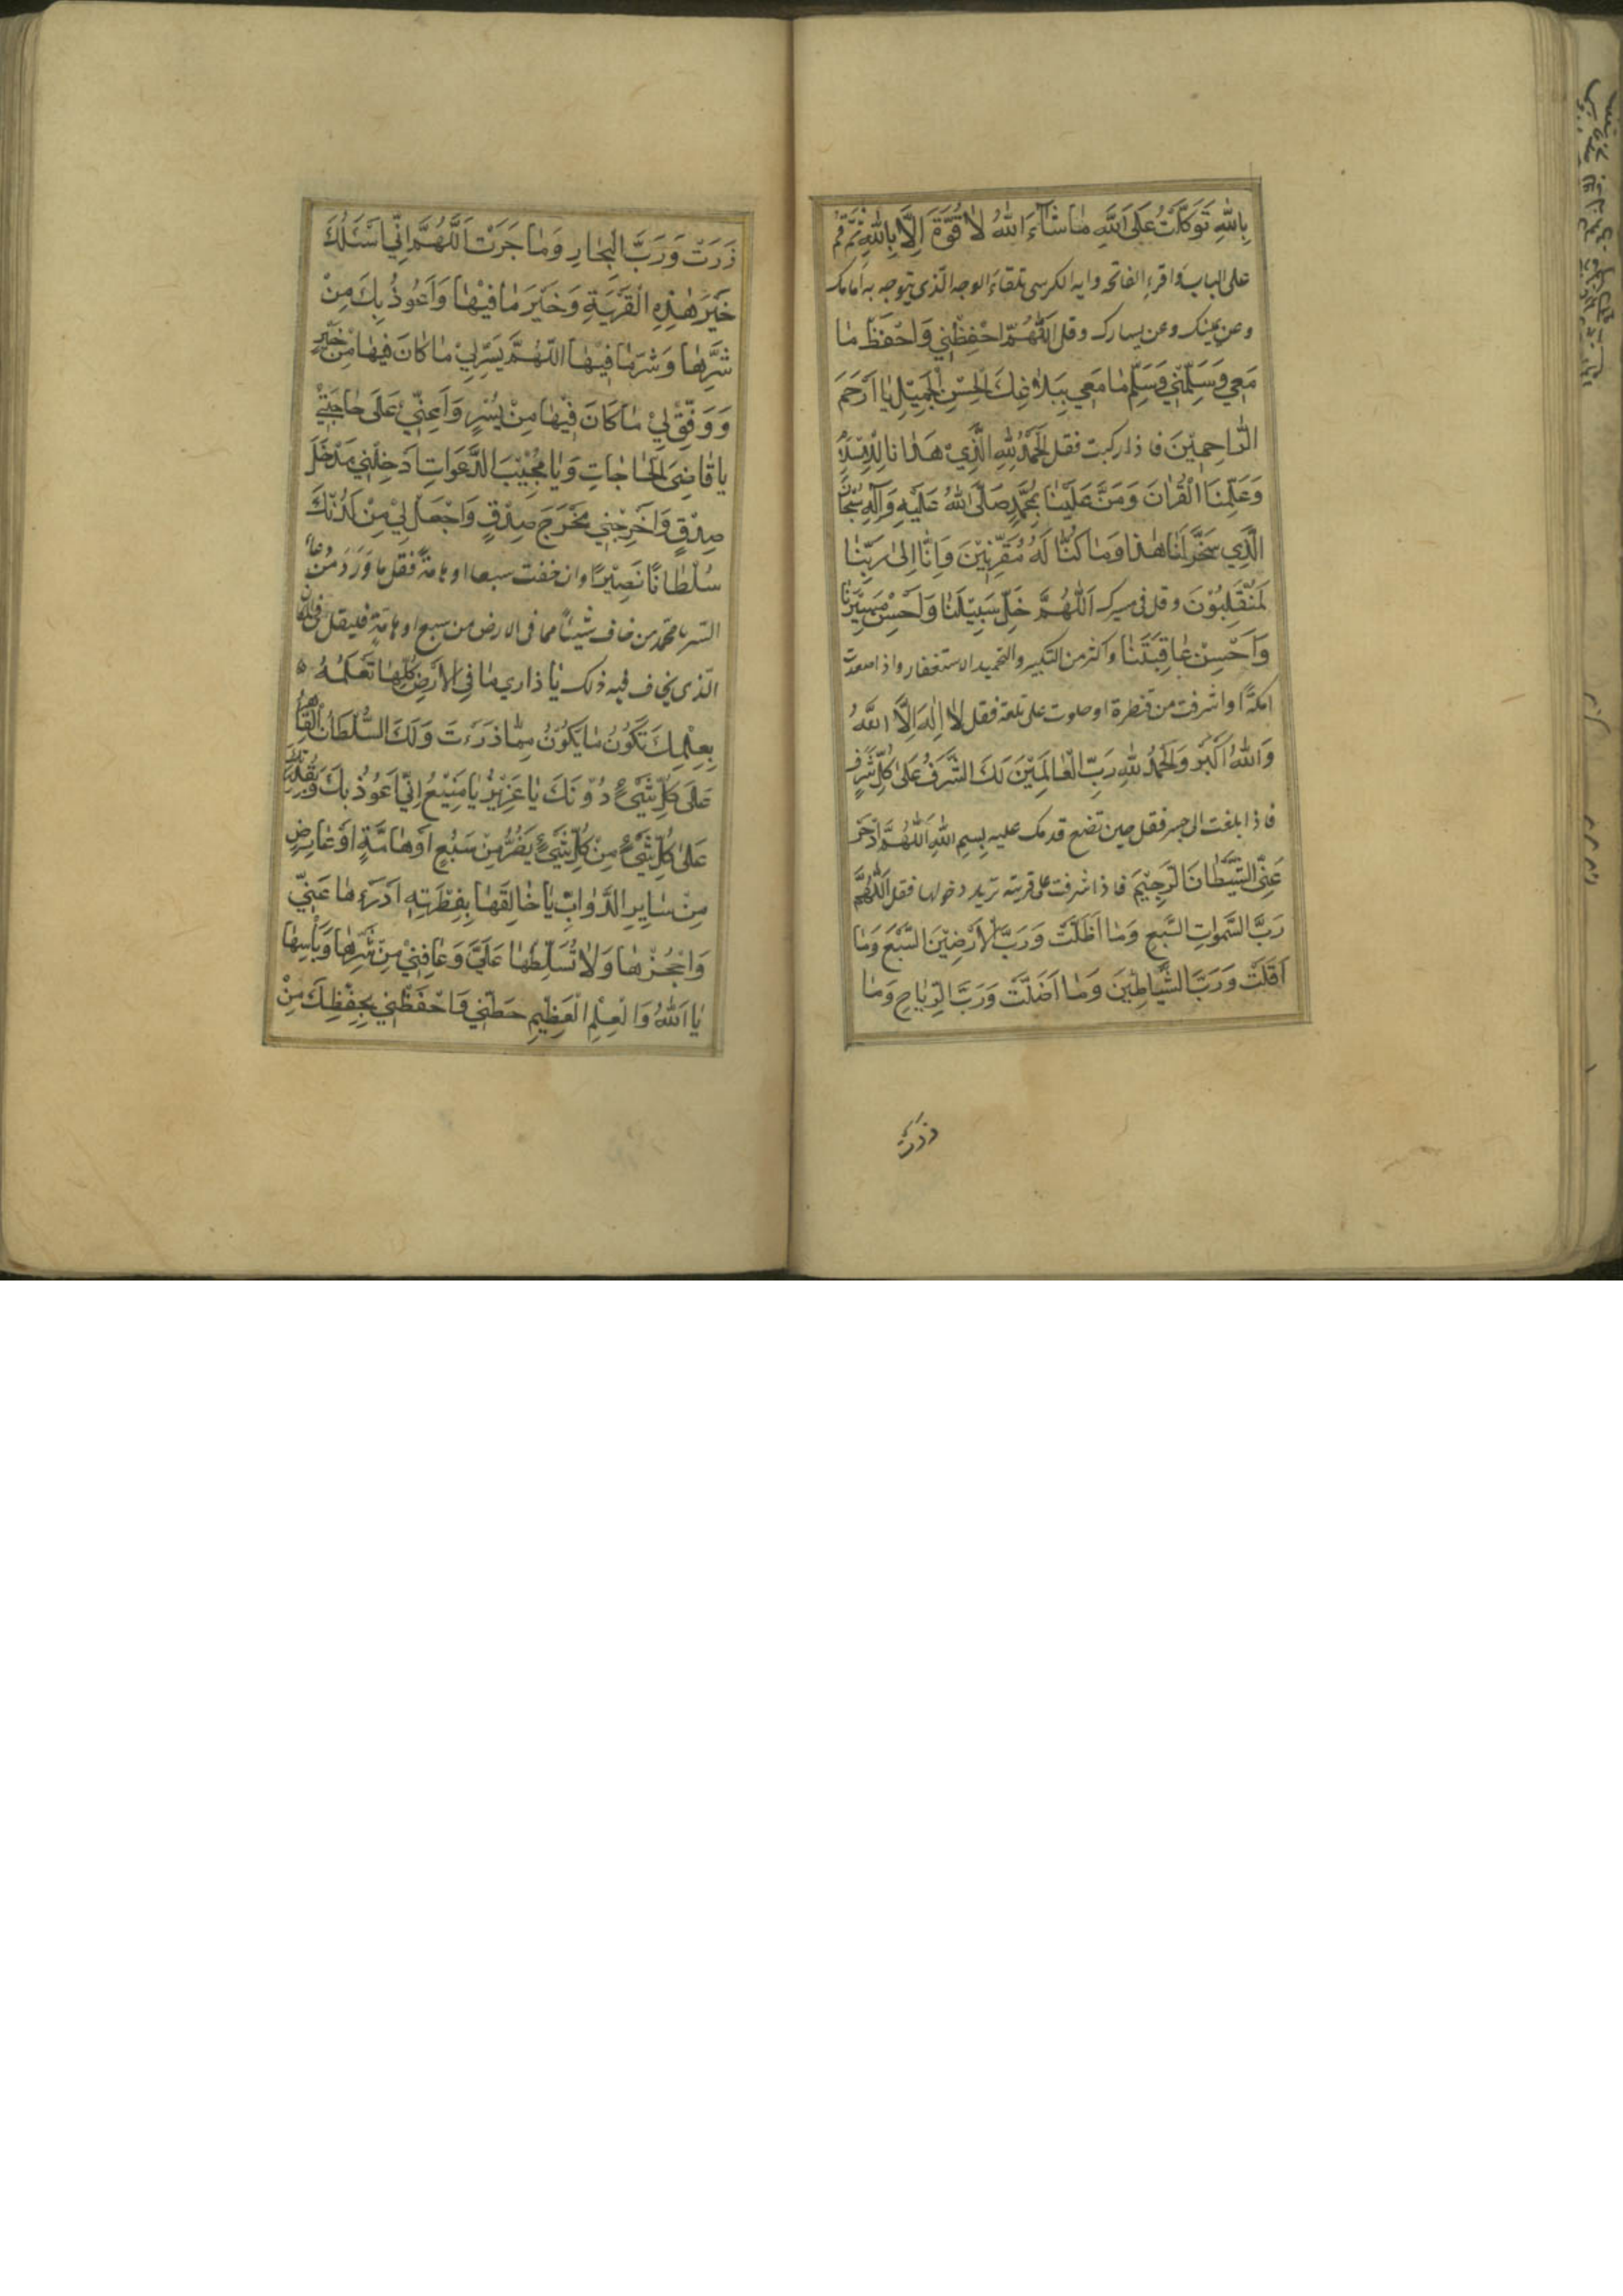 بِاللهِ تَوَكَّلْتُ عَلَى اللهِ مٰا شٰآءَ اللهُ لٰا قُوَّةَ اِلَّا بِاللهِ ثمّ قم
على الباب و اقرء الفاتحه وايه الكرسى تلقاء الوجه الّذى يتوجه به امامك
وعن يمينك وعن يسارك وقل اَللّٰهُمَّ احْفِظْنِي وَاحْفَظْ مٰا
مَعِي وَسَلِّمْنِي وَسَلِّمْ مٰا مَعِي بِبَلٰاغِكَ الْحَسَنِ الْجَمِيْلِ يٰا اَرْحَمَ
الرّٰاحِمِيْنَ فاذا ركبت فقل اَلْحَمْدُ لِلّٰهِ الَّذِيْ هَدٰانٰا لِلْاِسْلٰامِ
وَعَلَّمَنَا الْقُرْاٰنَ وَمَنَّ عَلَيْنٰا بِمُحَمَّدٍ صَلَّى اللهُ عَلَيْهِ وَآلِهِ سُبْحٰانَ
الَّذِي سَخَّرَ لَنٰا هٰذٰا وَمٰا كُنّٰا لَهُ مُقْرِنِيْنَ وَاِنّٰا اِلٰى رَبِّنٰا
لَمُنْقَلِبُوْنَ وقل فى سيرك اَللّٰهُمَّ خَلِّ سَبِيْلَنٰا وَاَحْسِنْ مَسِيْرَنٰا
وَاَحْسِنْ عٰاقِبَتَنٰا واكثر من التكبير والتحميد والاستغفار واذا صعدت
اكمة او اشرفت من قنطرة او علوت على تلعة فقل لٰا اِلٰهَ اِلَّا اللهُ
وَاللهُ اَكْبَرُ وَالْحَمْدُ لِلّٰهِ رَبِّ الْعٰالَمِيْنَ لَكَ الشَّرَفُ عَلٰى كُلِّ شَرَفٍ
فاذا بلغت الى جسر فقل حين تضع قدمك عليه بِسْمِ اللهِ اَللّٰهُمَّ ادْحَرْ
عَنِّي الشَّيْطٰانَ الرَّجِيْمَ فاذا اشرفت على قرية تريد دخولها فقل اَللّٰهُمَّ
رَبَّ السَّمٰوٰاتِ السَّبْعِ وَمٰا اَظَلَّتْ وَرَبَّ الْاَرَضِيْنَ السَّبْعَ وَمٰا
اَقَلَّتْ وَرَبَّ الشَّيٰاطِيْنَ وَمٰا اَضَلَّتْ وَرَبَّ الرِّيٰاحِ وَمٰا
ذَرَتْ
ذَرَتْ وَرَبَّ الْبِحٰارِ وَمٰا جَرَتْ اَللّٰهُمَّ اِنِّي اَسْئَلُكَ
خَيْرَ هٰذِهِ الْقَرْيَةِ وَخَيْرَ مٰا فِيْهٰا وَاَعُوْذُ بِكَ مِنْ
شَرِّهٰا وَشَرِّ مٰا فِيْهٰا اَللّٰهُمَّ يَسِّرْ لِيْ مٰا كٰانَ فِيْهٰا مِنْ خَيْرٍ
وَوَفِّقْ لِيْ مٰا كٰانَ فِيْهٰا مِنْ يُسْرٍ وَاَعِنِّيْ عَلٰى حٰاجَتِيْ
يٰا قٰاضِيَ الْحٰاجٰاتِ وَيٰا مُجِيْبَ الدَّعَوٰاتِ اَدْخِلْنِي مُدْخَلَ
صِدْقٍ وَاَخْرِجْنِي مُخْرَجَ صِدْقٍ وَاجْعَلْ لِيْ مِنْ لَدُنْكَ
سُلْطٰانًا نَصِيْرًا وان خفت سبعا او هامة فقل ما ورد من دعاء
السّر يا محمّد من خاف شيئا ممّا فى الارض من سبع او هامّة فليقل فى المكان
الّذى يخاف فيه ذلك يٰا ذٰارِي مٰا فِي الْاَرْضِ كُلِّهٰا تَعْلَمُهُ
بِعِلْمِكَ تَكُوْنُ مٰا يَكُوْنُ مِمّٰا ذَرَءْتَ وَلَكَ السُّلْطٰانُ الْقٰاهِرُ
عَلٰى كُلِّ شَيْءٍ دُوْنَكَ يٰا عَزِيْزُ يٰا مَنِيْعُ اِنِّي اَعُوْذُ بِكَ وَبِقُدْرَتِكَ
عَلٰى كُلِّ شَيْءٍ مِنْ كُلِّ شَيْءٍ يَضُرُّ مِنْ سَبُعٍ اَوْ هٰامَّةٍ اَوْ عٰارِضٍ
مِنْ سٰايِرِ الدَّوٰابِّ يٰا خٰالِقَهٰا بِفِطْرَتِهِ اَدْرَءْهٰا عَنِّي
وَاحْجُزْهٰا وَلٰا تُسَلِّطْهٰا عَلَيَّ وَعٰافِنِيْ مِنْ شَرِّهٰا وَبَأْسِهٰا
يٰا اَللهُ وَالْعِلْمِ الْعَظِيْمِ حُطْنِي وَاحْفَظْنِي بِحِفْظِكَ مِنْ